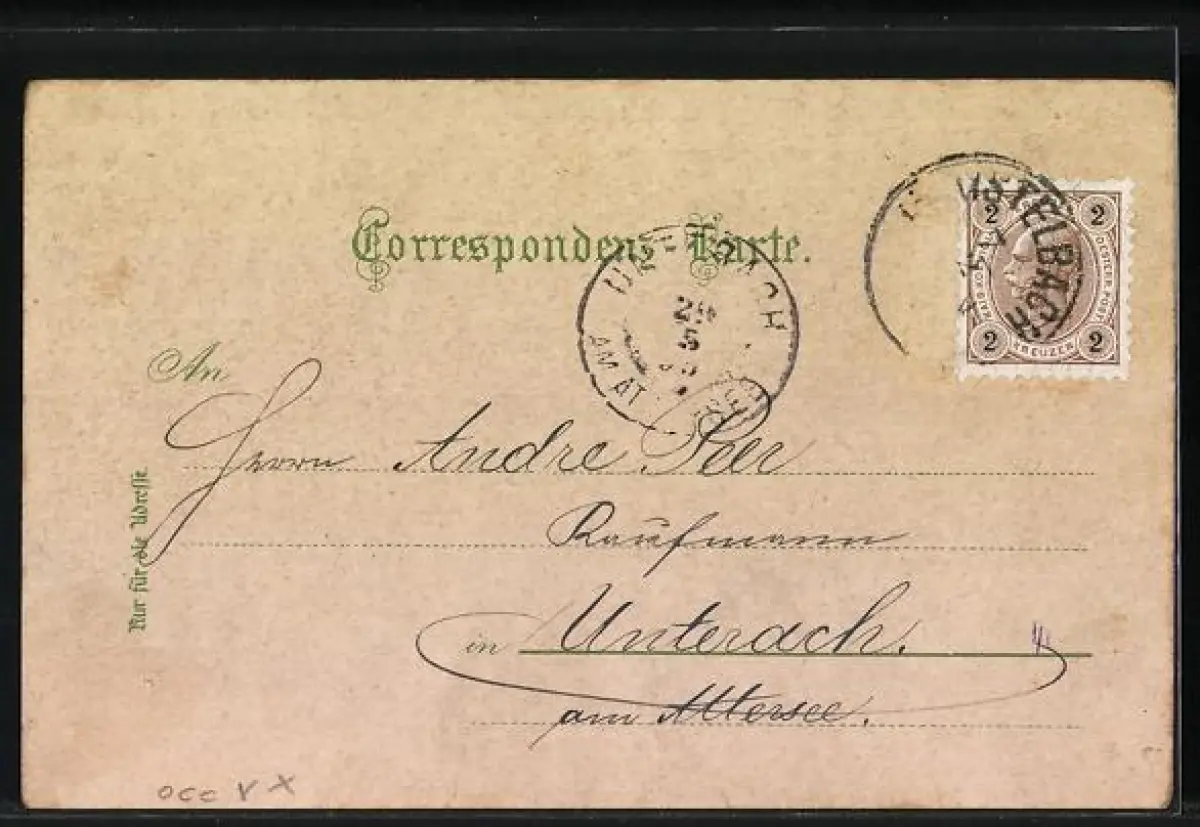 Correspondenz-Karte.
UNTERACH
28
5
AM AT
USTELBACH
2 2
KAIS. KOEN. OESTERR. POST
2 2
KREUZER
An
Herrn Andre Peer
Kaufmann
in Unterach.
am Attersee.
Nur für die Adresse
occ V X